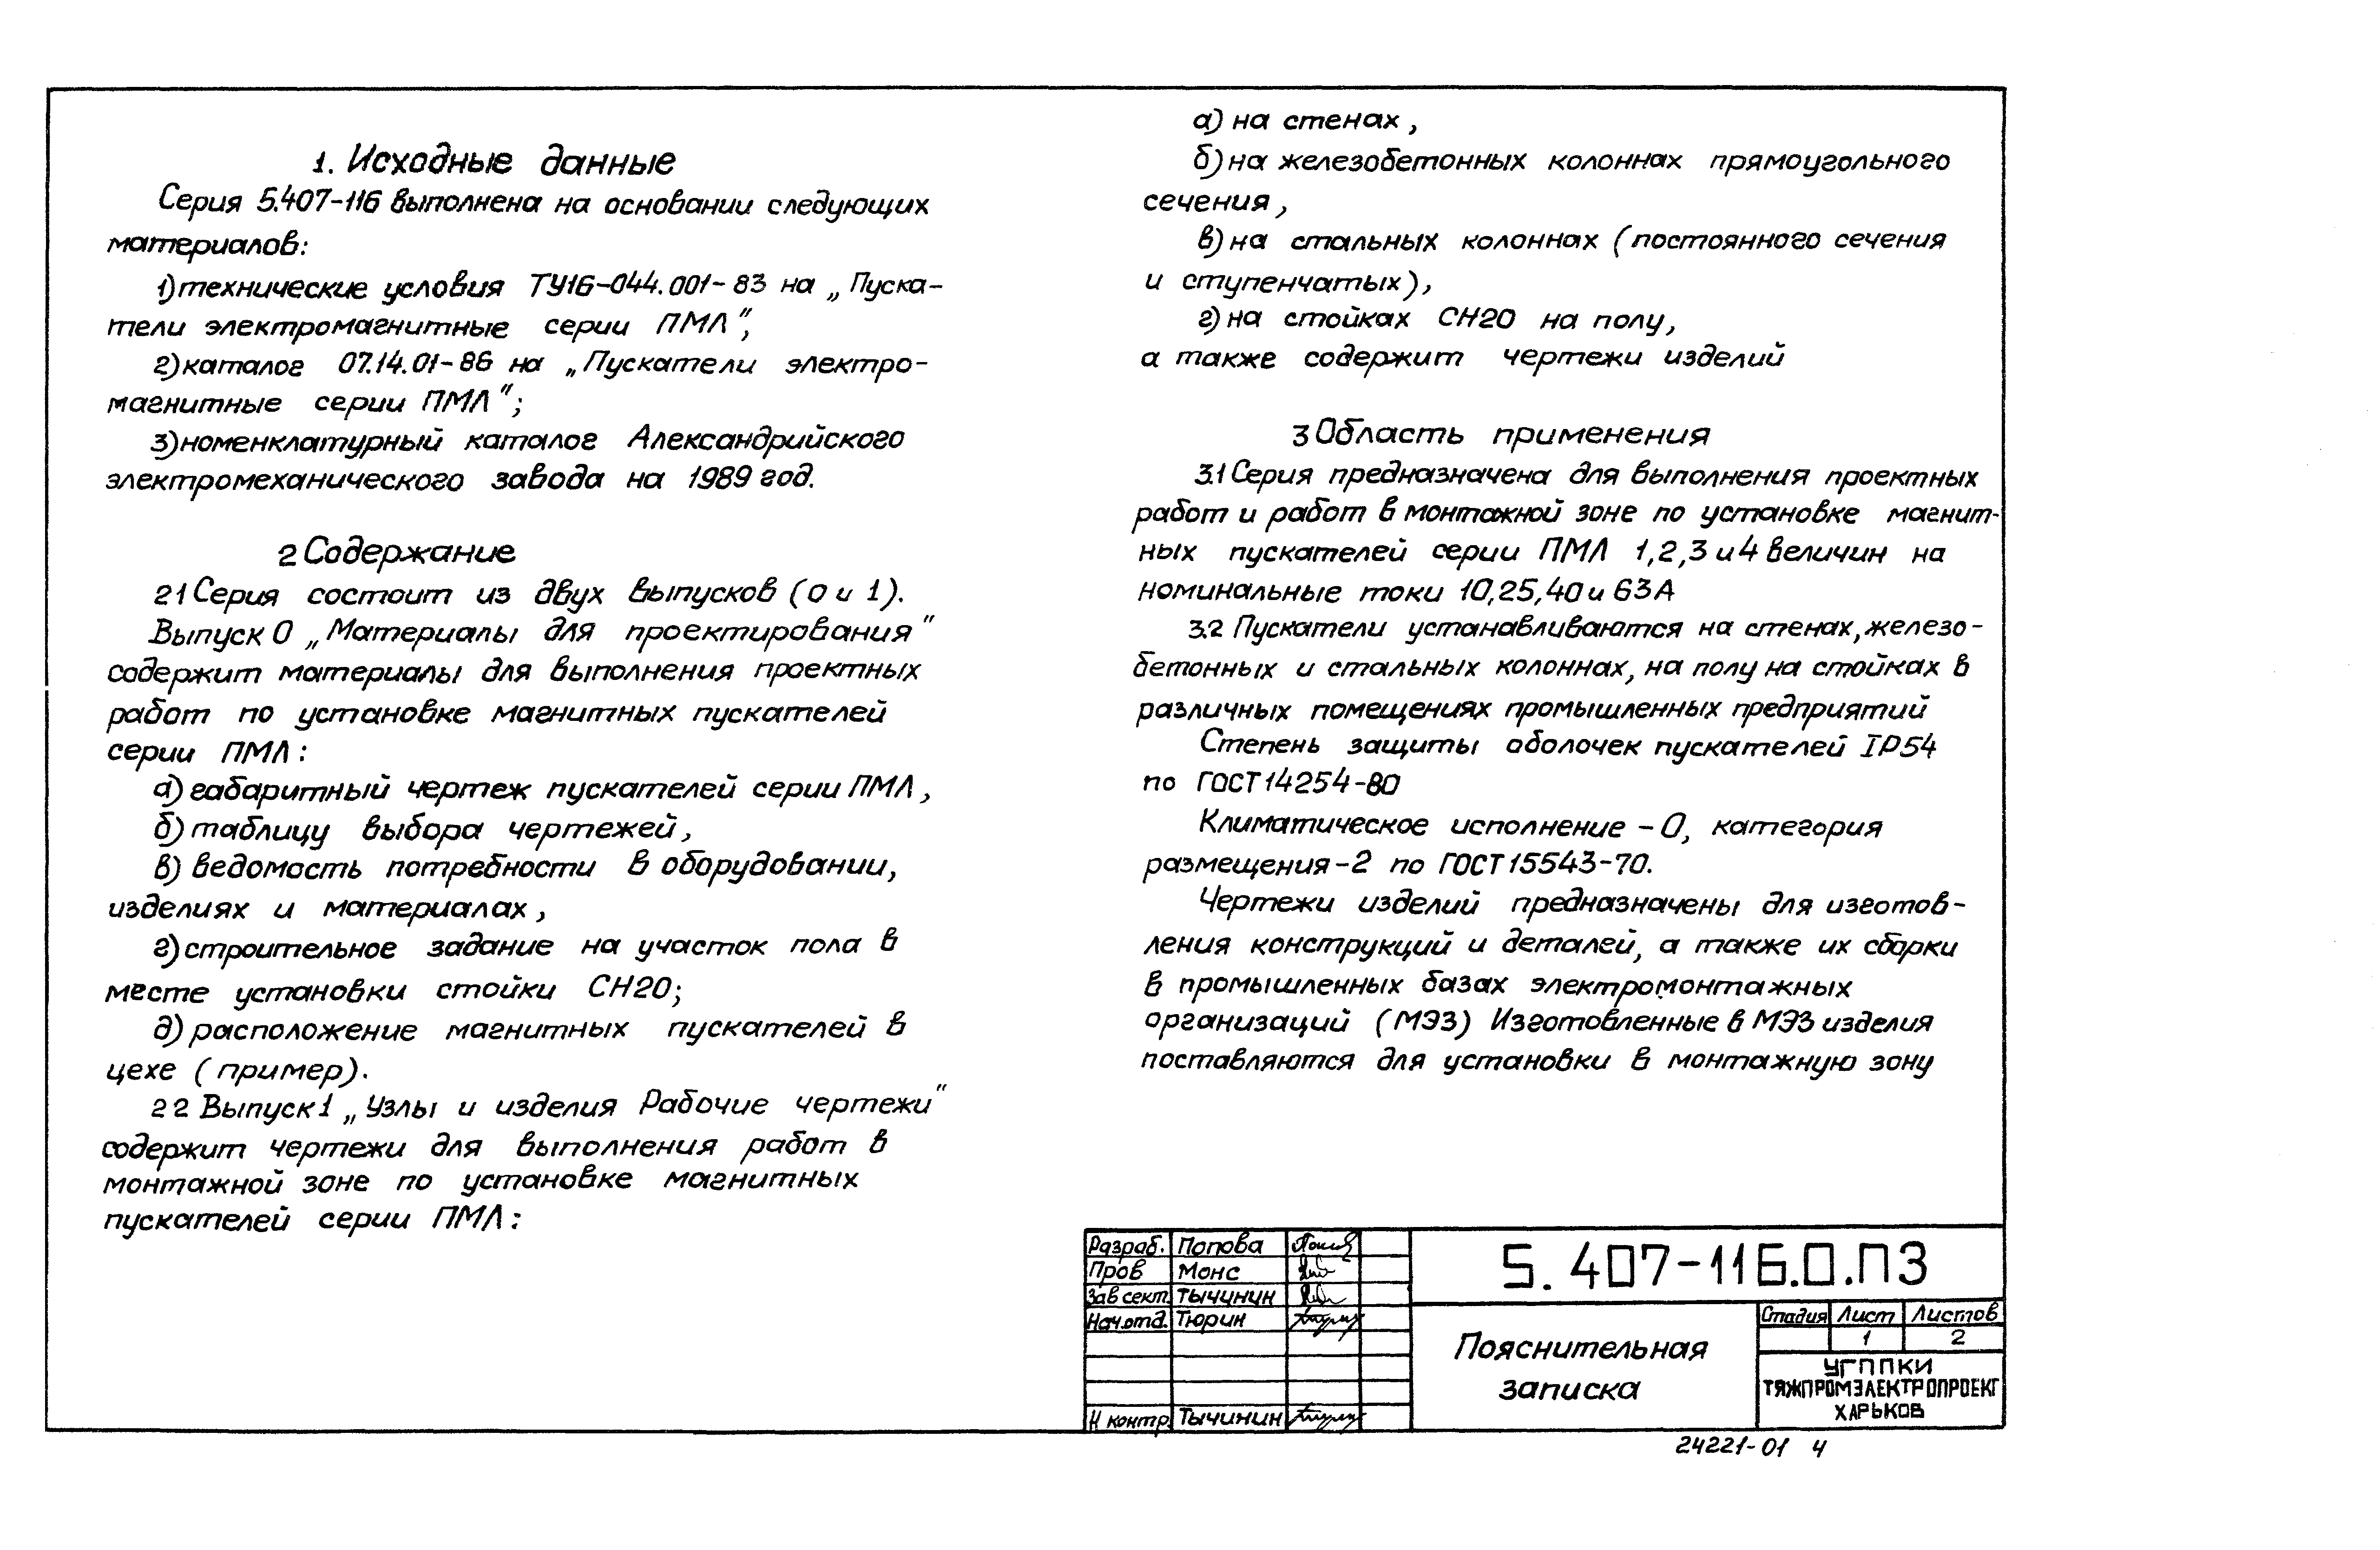 1. Исходные данные
Серия 5.407-116 выполнена на основании следующих
материалов:
1) технические условия ТУ16-044.001-83 на „Пуска-
тели электромагнитные серии ПМЛ“;
2) каталог 07.14.01-86 на „Пускатели электро-
магнитные серии ПМЛ“;
3) номенклатурный каталог Александрийского
электромеханического завода на 1989 год.
2 Содержание
21 Серия состоит из двух выпусков (0 и 1).
Выпуск 0 „Материалы для проектирования“
содержит материалы для выполнения проектных
работ по установке магнитных пускателей
серии ПМЛ:
а) габаритный чертеж пускателей серии ПМЛ,
б) таблицу выбора чертежей,
в) ведомость потребности в оборудовании,
изделиях и материалах,
г) строительное задание на участок пола в
месте установки стойки СН20;
д) расположение магнитных пускателей в
цехе (пример).
22 Выпуск 1 „Узлы и изделия Рабочие чертежи“
содержит чертежи для выполнения работ в
монтажной зоне по установке магнитных
пускателей серии ПМЛ:
а) на стенах,
б) на железобетонных колоннах прямоугольного
сечения,
в) на стальных колоннах (постоянного сечения
и ступенчатых),
г) на стойках СН20 на полу,
а также содержит чертежи изделий
3 Область применения
3.1 Серия предназначена для выполнения проектных
работ и работ в монтажной зоне по установке магнит-
ных пускателей серии ПМЛ 1,2,3 и 4 величин на
номинальные токи 10,25,40 и 63А
3.2 Пускатели устанавливаются на стенах, железо-
бетонных и стальных колоннах, на полу на стойках в
различных помещениях промышленных предприятий
Степень защиты оболочек пускателей IP54
по ГОСТ 14254-80
Климатическое исполнение - О, категория
размещения - 2 по ГОСТ 15543-70.
Чертежи изделий предназначены для изготов-
ления конструкций и деталей, а также их сборки
в промышленных базах электромонтажных
организаций (МЭЗ) Изготовленные в МЭЗ изделия
поставляются для установки в монтажную зону
Разраб. Попова
Пров Монс
Зав сект. Тычинин
Нач.отд. Тюрин
Н контр. Тычинин
5.407-116.0.ПЗ
Пояснительная
записка
Стадия Лист Листов
1 2
УГППКИ
ТЯЖПРОМЭЛЕКТРОПРОЕКТ
ХАРЬКОВ
24221-01 4